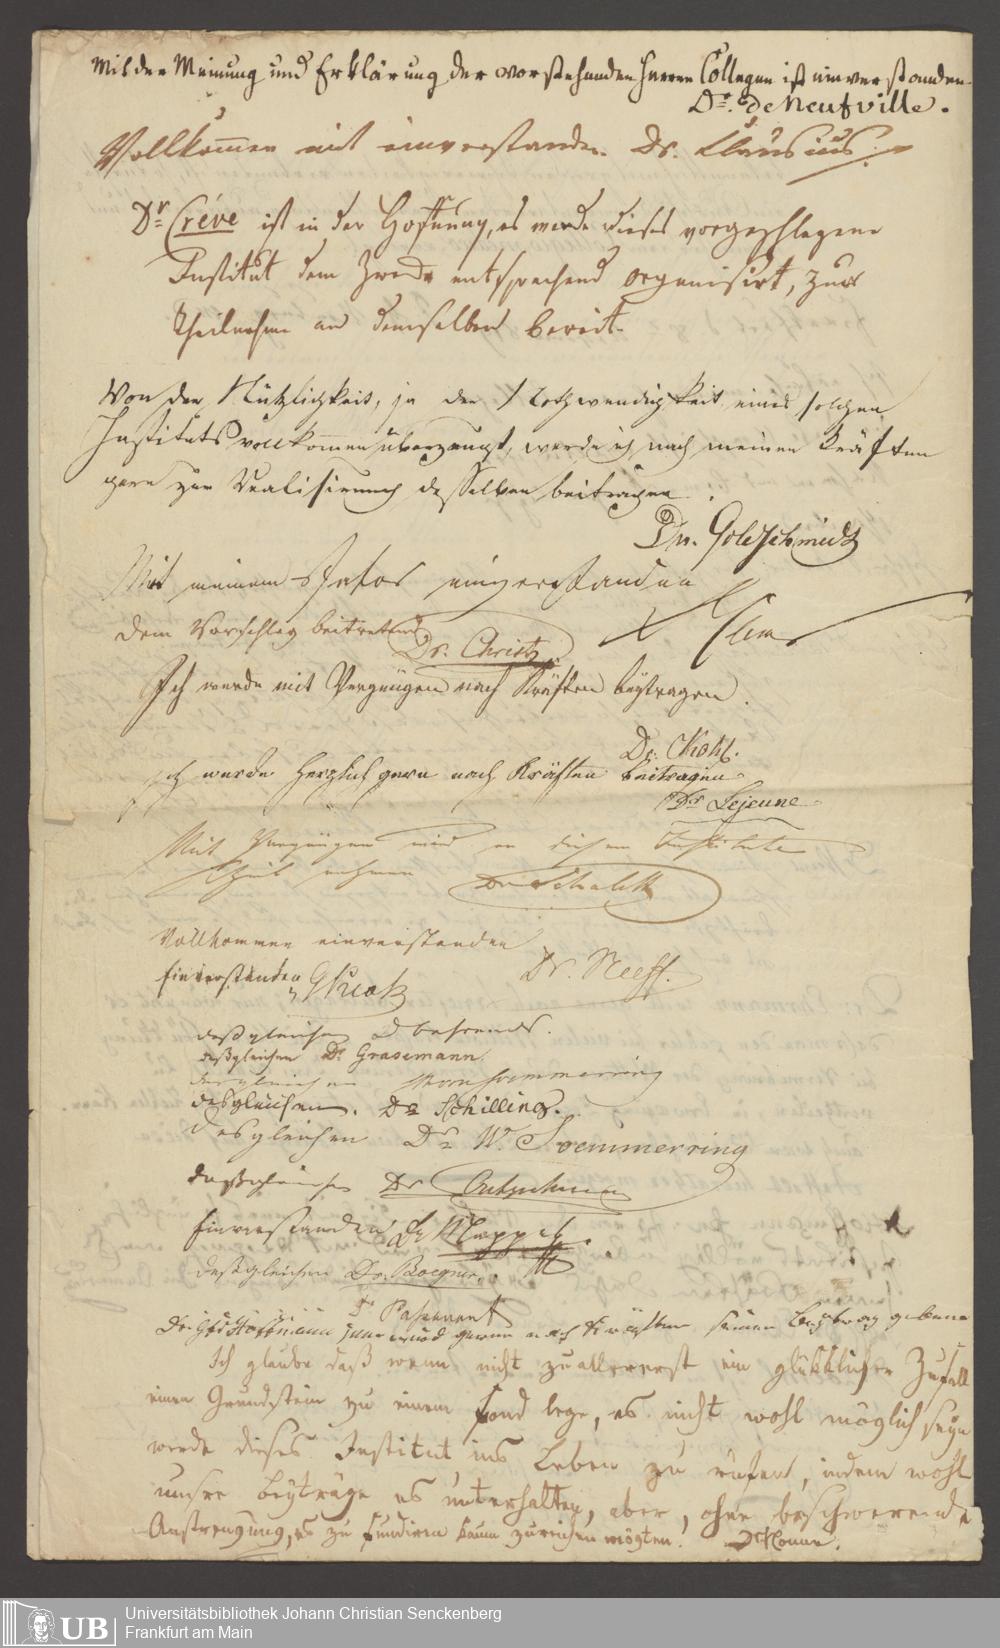 Mit der Meinung und Erklärung der vorstehenden Herren Collegen ist einverstanden
Dr. de Neufville.
Vollkommen mit einverstanden. Dr. Clausius.
Dr Créve ist in der Hoffnung, es werde dieses vorgeschlagene
Institut dem Zweck entsprechend organisirt, zur
Theilnahme an demselben bereit.
Von der Nützlichkeit, ja der Nothwendigkeit eines solchen
Instituts vollkommen überzeugt, werde ich nach meinen Kräften
gern zur Realisirung desselben beitragen.
Dr. Goldschmidt
Mit meinem einverstanden
Dem Vorschlag beitretend,
Dr. Christ
Ich werde mit Vergnügen nach Kräften beytragen.
Dr.
Ich werde herzlich gern nach Kräften beitragen.
Dr Lejeune
Mit Vergnügen wird an diesem Institute
Theil nehmen Dr. Schalck
Vollkommen einverstanden
Dr. Neeff.
Einverstanden
desgleichen Behrends.
desgleichen Dr. Grasemann
desgleichen Soemmerring
desgleichen. Dr Schilling.
desgleichen Dr W. Soemmerring
desgleichen Dr
Einverstanden Dr Mappes.
desgleichen Dr.
Dr Passavant
Dr. Hoffmann jun. wird gerne nach Kräften seinen Beytrag geben
Ich glaube daß wenn nicht zuallererst ein glücklicher Zufall
einen Grundstein zu einem Fond lege, es nicht wohl möglich seyn
werde dieses Institut ins Leben zu rufen, indem wohl
unsre Beyträge es unterhalten, aber, ohne beschwerende
Anstrengung, es zu fundiren kaum zureichen mögten.
Universitätsbibliothek Johann Christian Senckenberg
Frankfurt am Main
UB